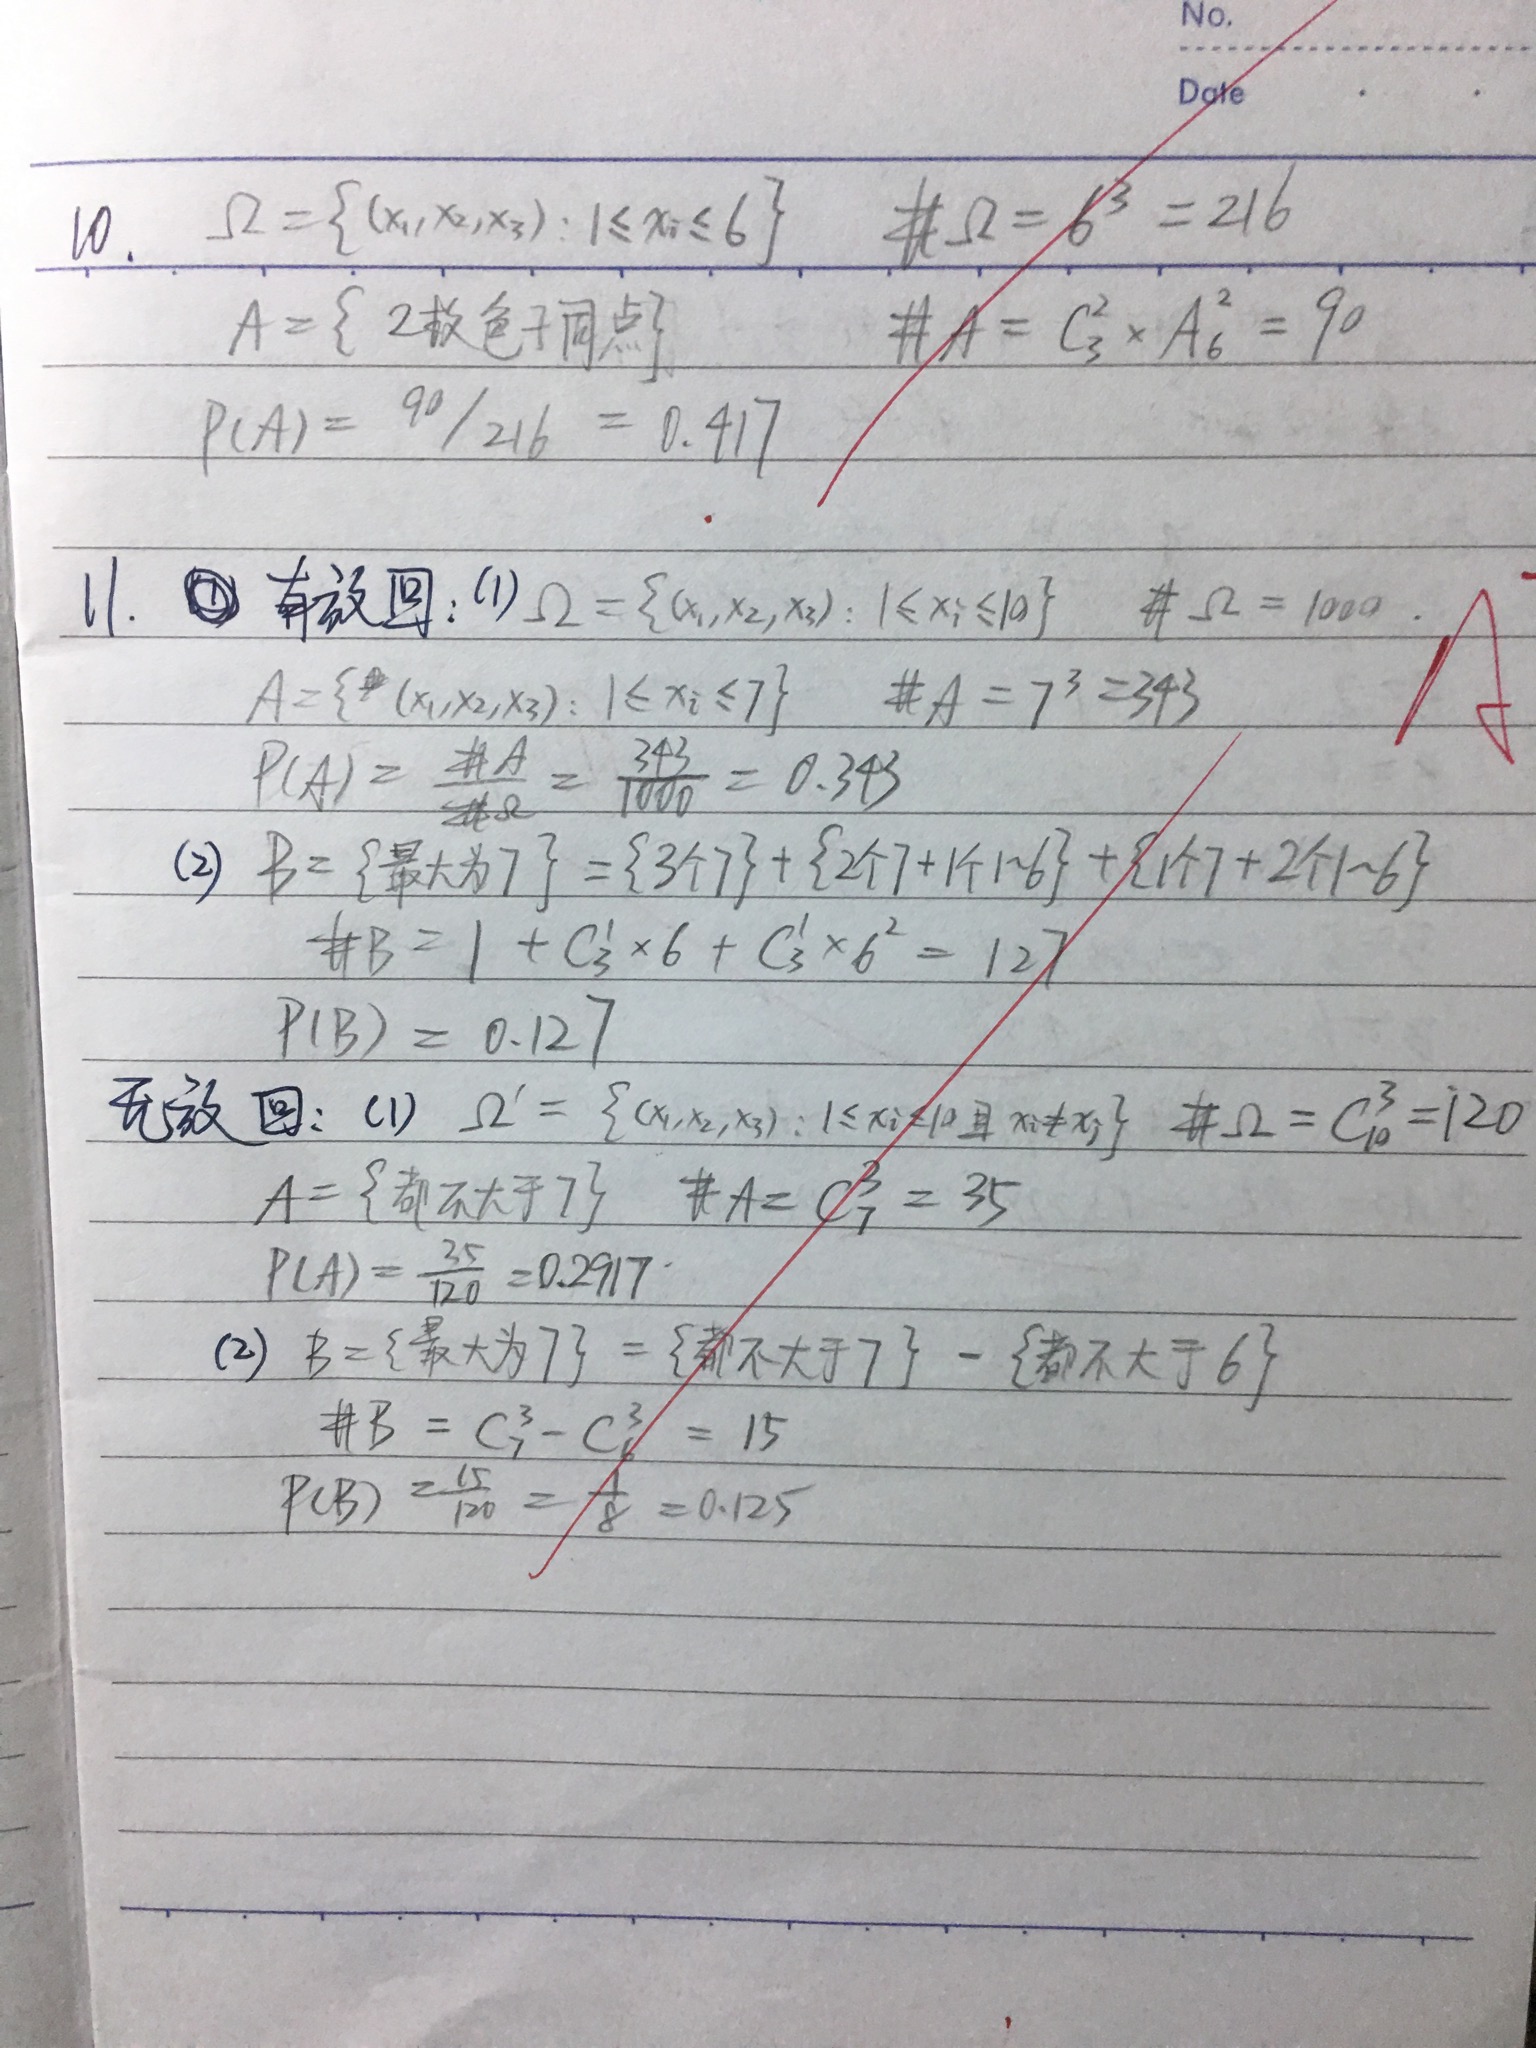 No.
Date
10. Ω = {(x₁, x₂, x₃) : 1 ≤ xᵢ ≤ 6} #Ω = 6³ = 216
A = { 2枚色子同点} #A = C₃² × A₆² = 90
P(A) = 90/216 = 0.417
11. ① 有放回: (1) Ω = {(x₁, x₂, x₃) : 1 ≤ xᵢ ≤ 10} #Ω = 1000 .
A = {(x₁, x₂, x₃) : 1 ≤ xᵢ ≤ 7} #A = 7³ = 343
P(A) = #A/#Ω = 343/1000 = 0.343
(2) B = {最大为7} = {3个7} + {2个7+1个1~6} + {1个7+2个1~6}
#B = 1 + C₃¹ × 6 + C₃¹ × 6² = 127
P(B) = 0.127
无放回: (1) Ω' = {(x₁, x₂, x₃) : 1 ≤ xᵢ ≤ 10 且 xᵢ ≠ xⱼ} #Ω = C₁₀³ = 120
A = {都不大于7} #A = C₇³ = 35
P(A) = 35/120 = 0.2917
(2) B = {最大为7} = {都不大于7} - {都不大于6}
#B = C₇³ - C₆³ = 15
P(B) = 15/120 = 1/8 = 0.125
A⁻